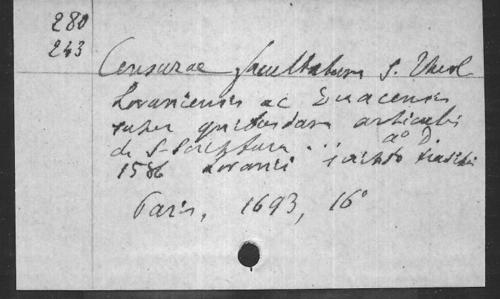 280
243
Censurae facultatum S. Theol
Lovaniensis ac Duacensis
super quibusdam articulis
de S. Scriptura ... a° D.
1586 Lovanii scripto traditis
Paris, 1693, 16°